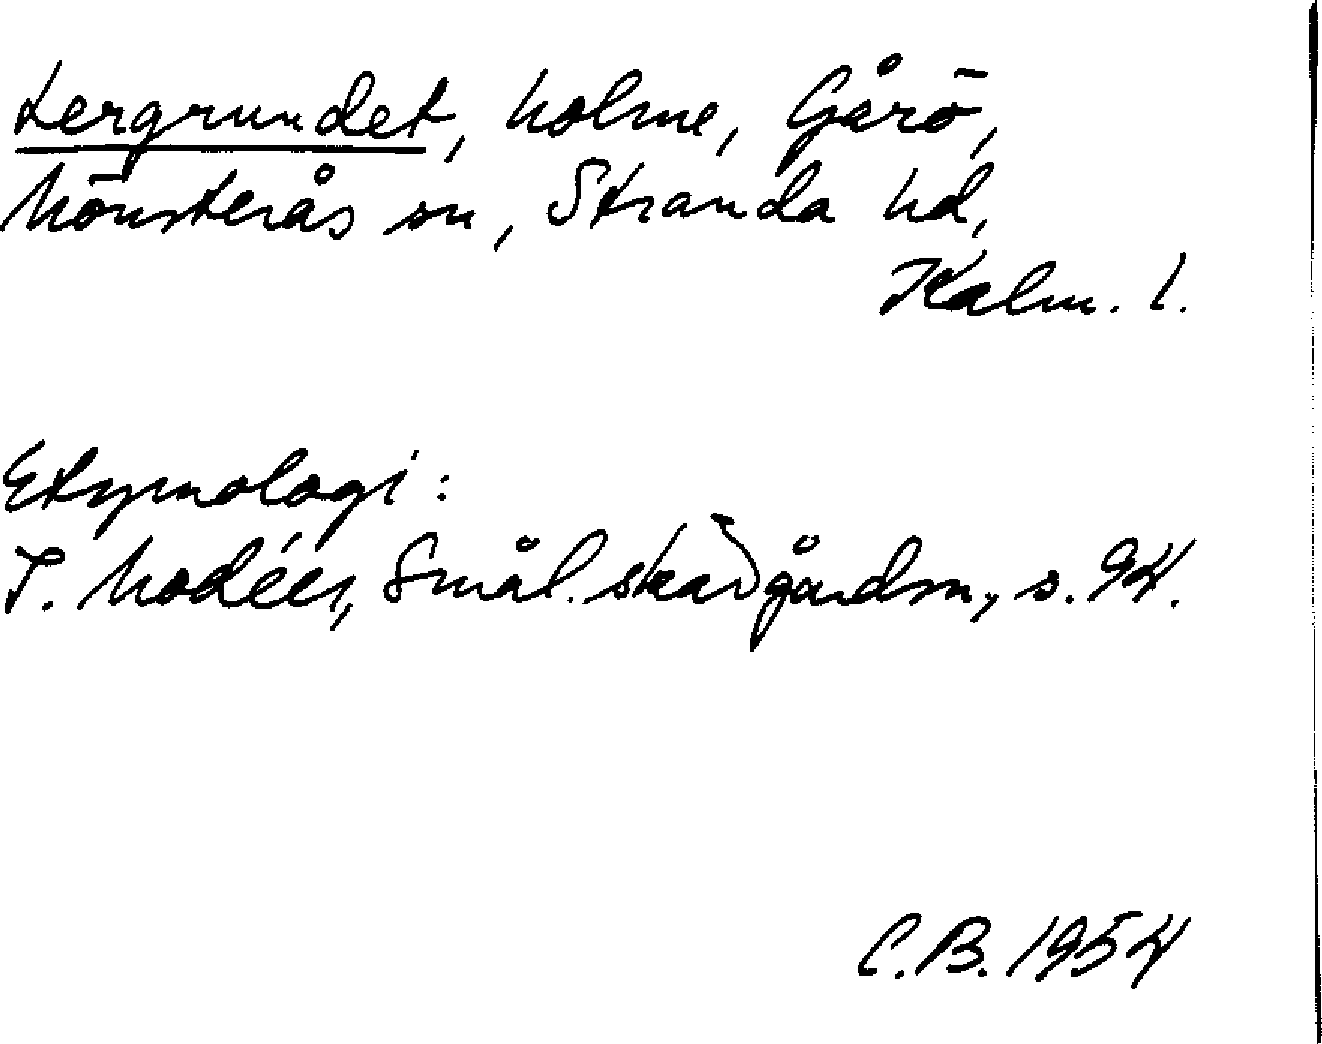 Lergrundet, holme, Gårö,
Mönsterås sn, Stranda hd,
Kalm. l.
Etymologi:
I. Modéer, Smål. skärgårdsn., s. 94.
C.B. 1954